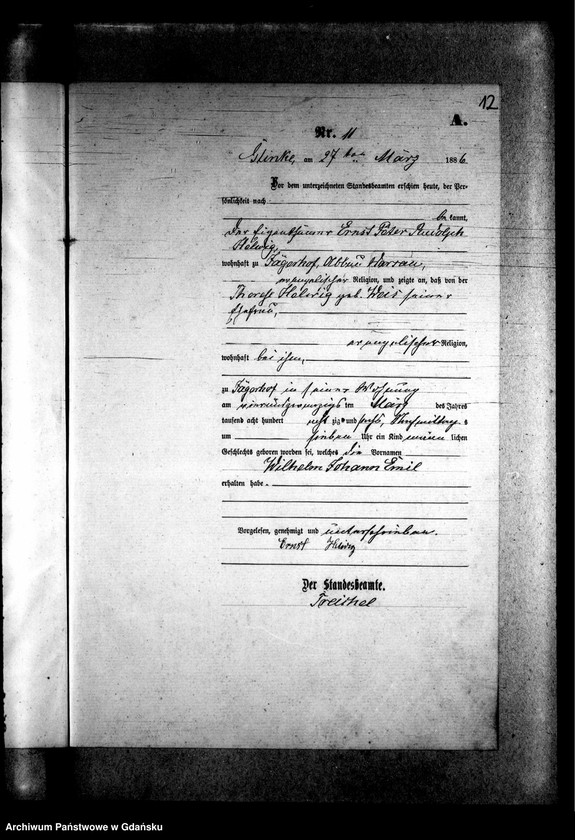 12
A.
Nr. 11
Glinke, am 27ten März 1886
Vor dem unterzeichneten Standesbeamten erschien heute, der Per-
sönlichkeit nach
be kannt,
der Eigenthümer Ernst Peter Rudolph
Helwig,
wohnhaft zu Jägerhof, Abbau
evangelischer Religion, und zeigte an, daß von der
Therese Helwig geb. Weis seiner
Ehefrau,
evangelischer Religion,
wohnhaft bei ihm,
zu Jägerhof in seiner Wohnung
am vierundzwanzigs ten März des Jahres
tausend acht hundert acht zig und sechs, Nachmittags
um sieben Uhr ein Kind männ lichen
Geschlechts geboren worden sei, welches die Vornamen
Wilhelm Johann Emil
erhalten habe.
Vorgelesen, genehmigt und unterschrieben.
Ernst Helwig
Der Standesbeamte.
Treichel
Archiwum Państwowe w Gdańsku